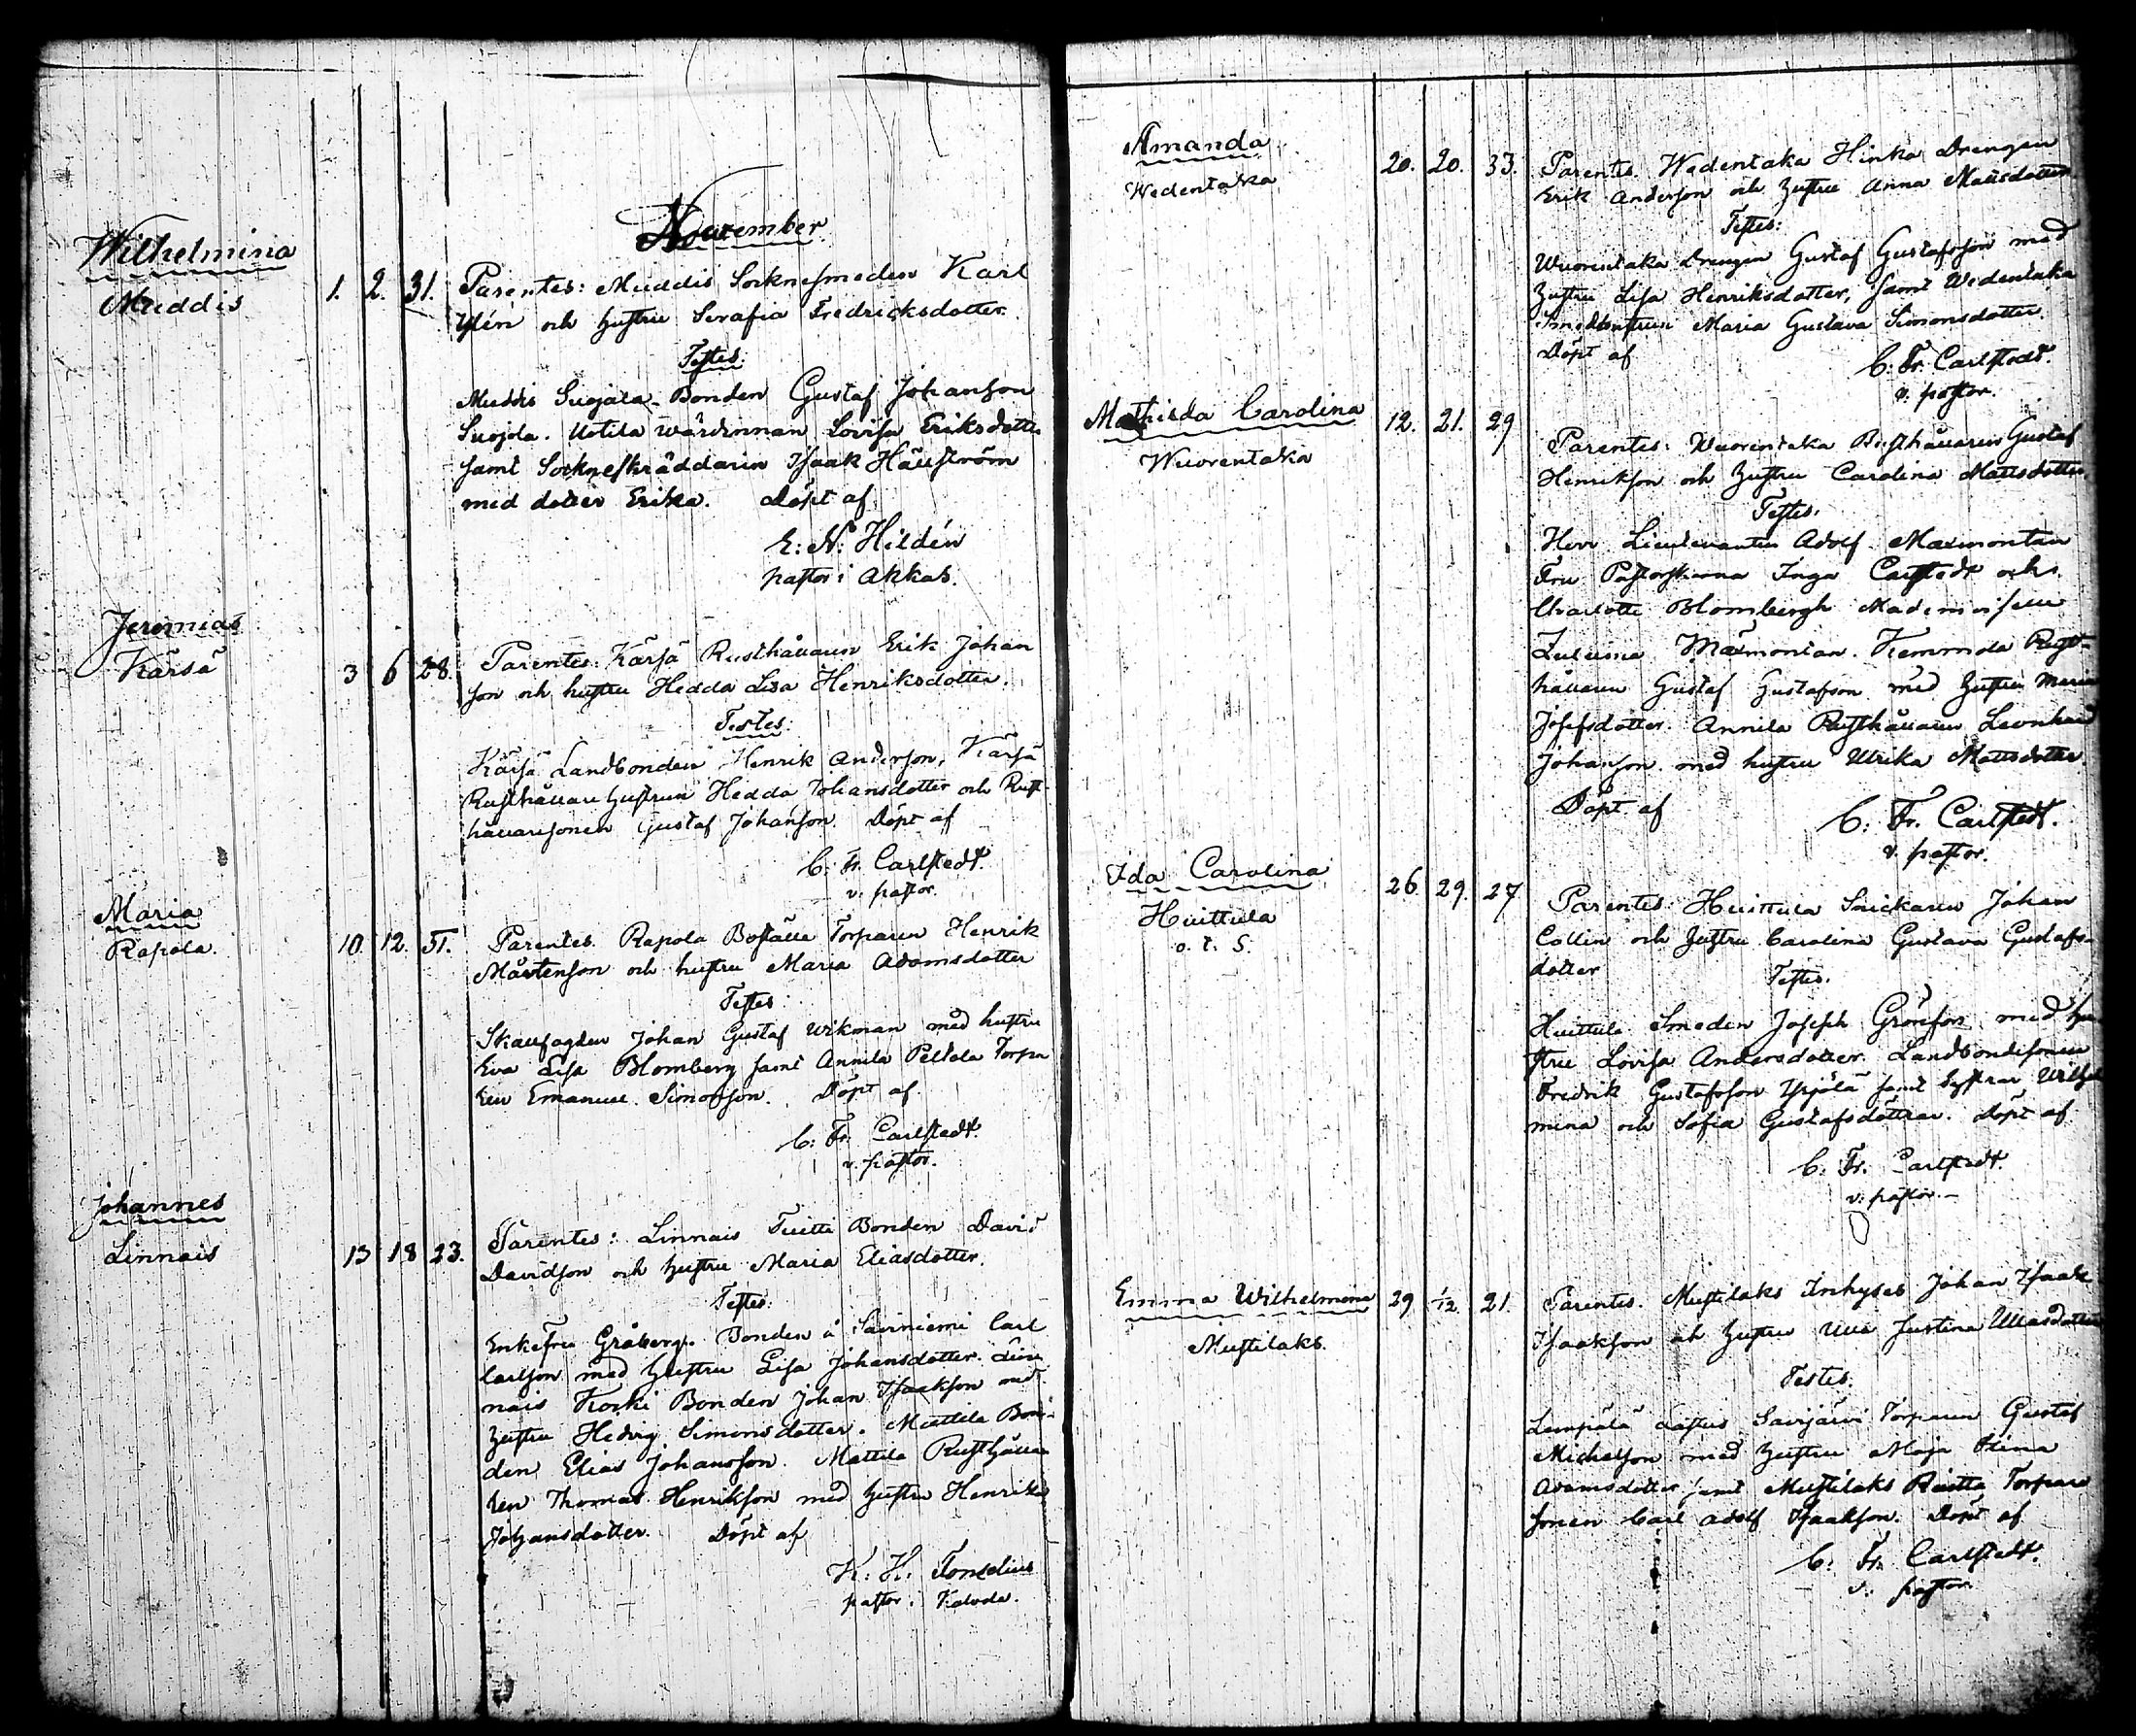 November
Wilhelmina
Muddis
1. 2. 31.
Parentes: Muddis Socknesmeden Karl
Ylén och hustru Serafia Fredricksdotter.
Testes:
Muddis Suojala Bonden Gustaf Johanson
Suojola. Uotila wärdinnan Lovisa Eriksdotter
samt Sockneskräddaren Isaak Häggström
med dotter Erika. Döpt af
E: N: Hildén
pastor i Akkas.
Jeremias
Kärsä
3 6 28.
Parentes: Kärsä Rusthållaren Erik Johan
son och hustru Hedda Lisa Henriksdotter.
Testes:
Kärsä Landbonden Henrik Anderson, Kärsä
Rusthållare hustrun Hedda Johansdotter och Rust
hållaresonen Gustaf Johanson. Döpt af
C: Fr. Carlstedt.
v. pastor.
Maria
Rapola.
10. 12. 51.
Parentes. Rapola Boställe Torparen Henrik
Mårtenson och hustru Maria Adamsdotter
Testes:
Johan Gustaf Wikman med hustru
Eva Lisa Blomberg samt Annila Peltola Torpa
ren Emanuel Simonson. Döpt af
C: Fr. Carlstedt.
v. pastor.
Johannes
Linnais
13 18 23.
Parentes: Linnais Tuitti Bonden David
Davidson och hustru Maria Eliasdotter.
Testes:
Enkefru Gråberg. Bonden å Savniemi Carl
Carlson med hustru Lisa Johansdotter. Lin
nais Koski Bonden Johan Isaakson med
hustru Hedvig Simonsdotter. Muttila Bon-
den Elias Johansson. Mattila Rusthålla
ren Thomas Henrikson med hustru Henrika
Johansdotter. Döpt af
K: H: Fonselius
pastor i Kalvola.
Amanda
Wedentaka
20. 20. 33.
Parentes. Wedentaka Hinka Drengen
Erik Anderson och hustru Anna Mattsdotter
Testes:
Wuorentaka Drengen Gustaf Gustafsson med
hustru Lisa Henriksdotter, samt Wedentaka
Smedhustrun Maria Gustava Simonsdotter.
Döpt af
C. Fr. Carlstedt.
v. pastor.
Mathilda Carolina
Wuorentaka
12. 21. 29
Parentes: Wuorentaka Rusthållaren Gustaf
Henrikson och hustru Carolina Mattsdotter.
Testes.
Herr Lieutenanten Adolf Maxmontan
Fru Pastorskorna Inga Carlstedt och
Charlotte Blombergh Mademoiselle
Maxmontan. Kemmola Rust-
hållaren Gustaf Gustafson med hustru Maria
Josefsdotter. Annila Rusthållaren Leonhard
Johanson med hustru Ulrika Mattsdotter
Döpt af
C: Fr. Carlstedt.
v. pastor.
Ida Carolina
Huittula
o. t. S.
26. 29. 27
Parentes Huittula Snickaren Johan
Collin och hustru Carolina Gustava Gustafs-
dotter
Testes.
Huittula Smeden Joseph Grönfors med hu
stru Lovisa Andersdotter. Landbondesonen
Fredrik Gustafsson Yrjölä samt systrar Wilhel
mina och Sofia Gustafsdöttrar. Döpt af
C. Fr. Carlstedt.
v. pastor.
Emma Wilhelmina
Mustilaks.
29 1/12. 21.
Parentes. Mustilaks Inhyses Johan Isaak
Isaakson och hustru Ulla Justina
Testes.
Lempälä Savijärvi Torparen Gustaf
Michelson med hustru Maja Stina
Adamsdotter samt Mustilaks Torpare
sonen Carl Adolf Isaakson. Döpt af
C: Fr. Carlstedt.
v. pastor